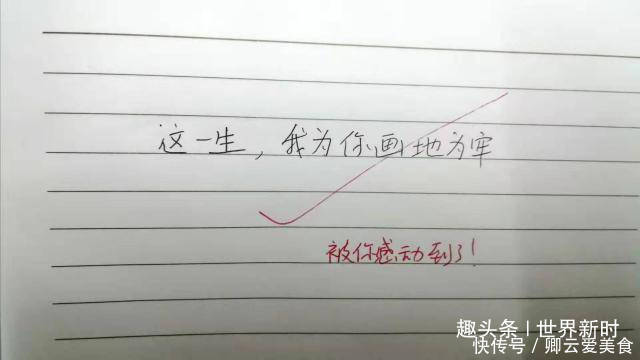 这一生，我为你画地为牢
被你感动到了！
趣头条 | 世界新时
快传号 / 卿云爱美食